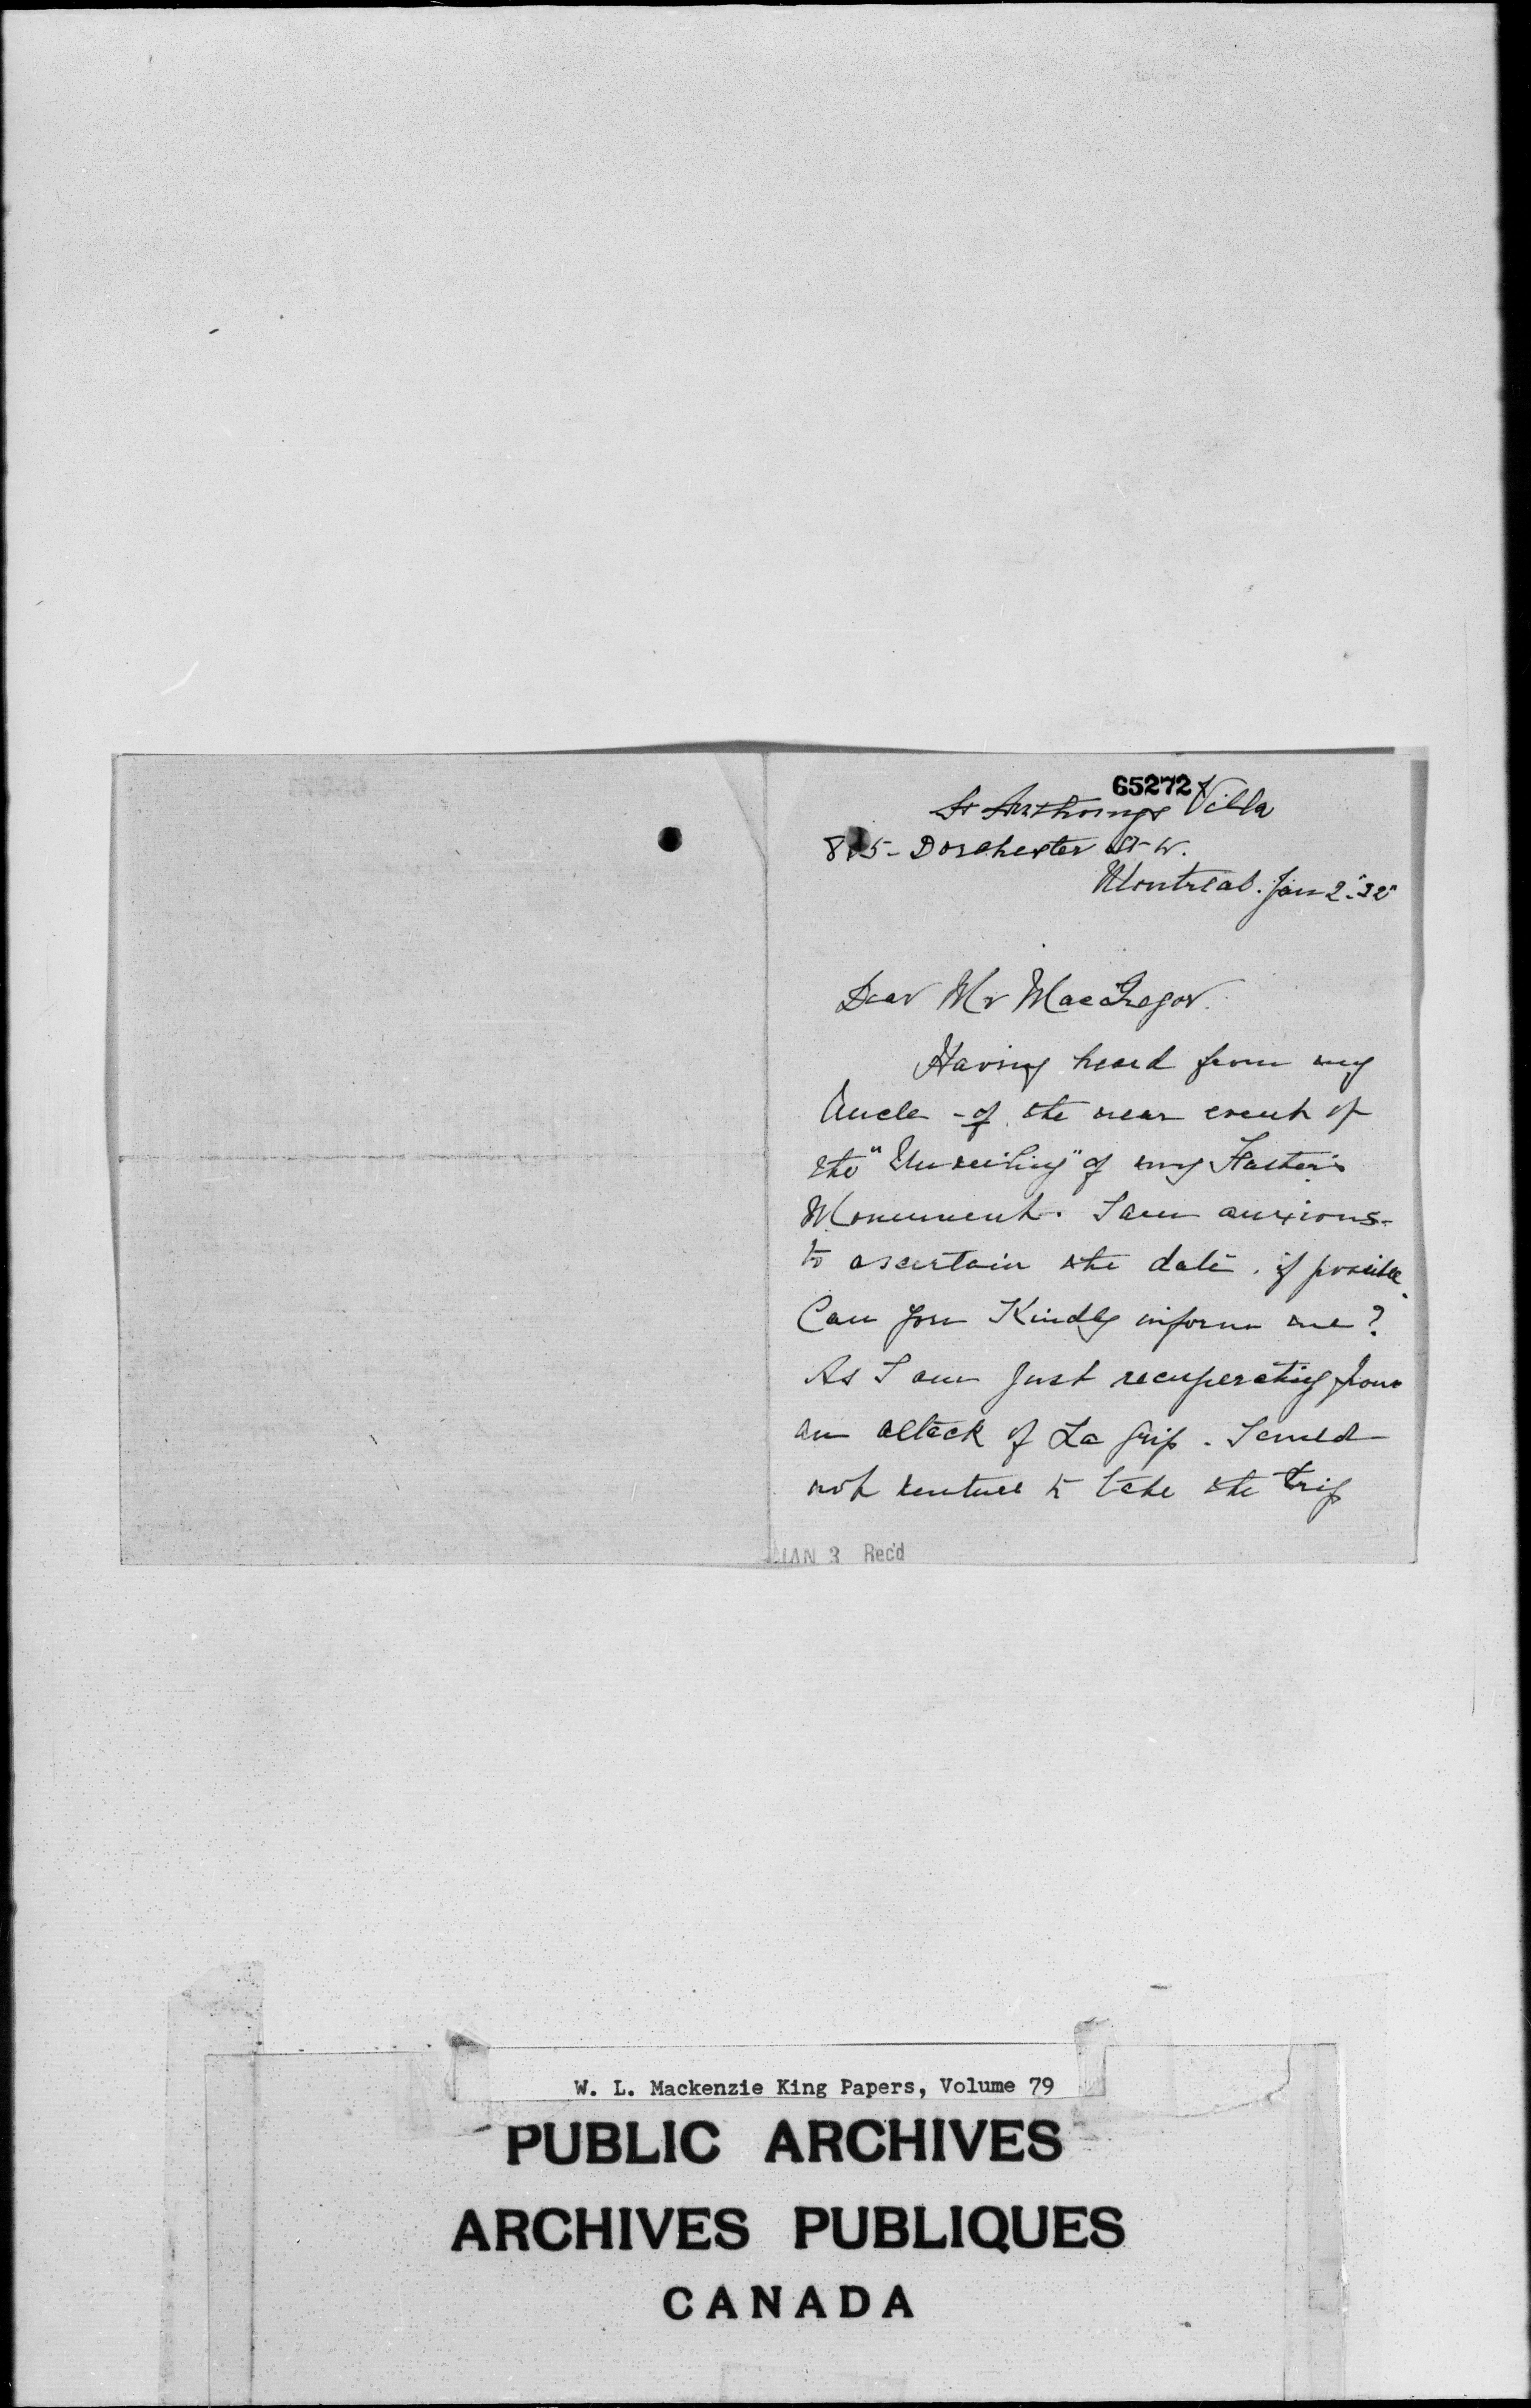 65272
St Anthony's Villa
Dorchester St W.
Montreal. Jan 2. "32"
Dear Mr MacGregor.
Having heard from my
Uncle - of the near event of
the "Unveiling" of my Father's
Monument. I am anxious-
to ascertain the date. if possible.
Can you Kindly inform me?
As I am Just recuperating from
an attack of La Grip. I could
not venture to take the trip
JAN 3 Rec'd
W. L. Mackenzie King Papers, Volume 79
PUBLIC ARCHIVES
ARCHIVES PUBLIQUES
CANADA